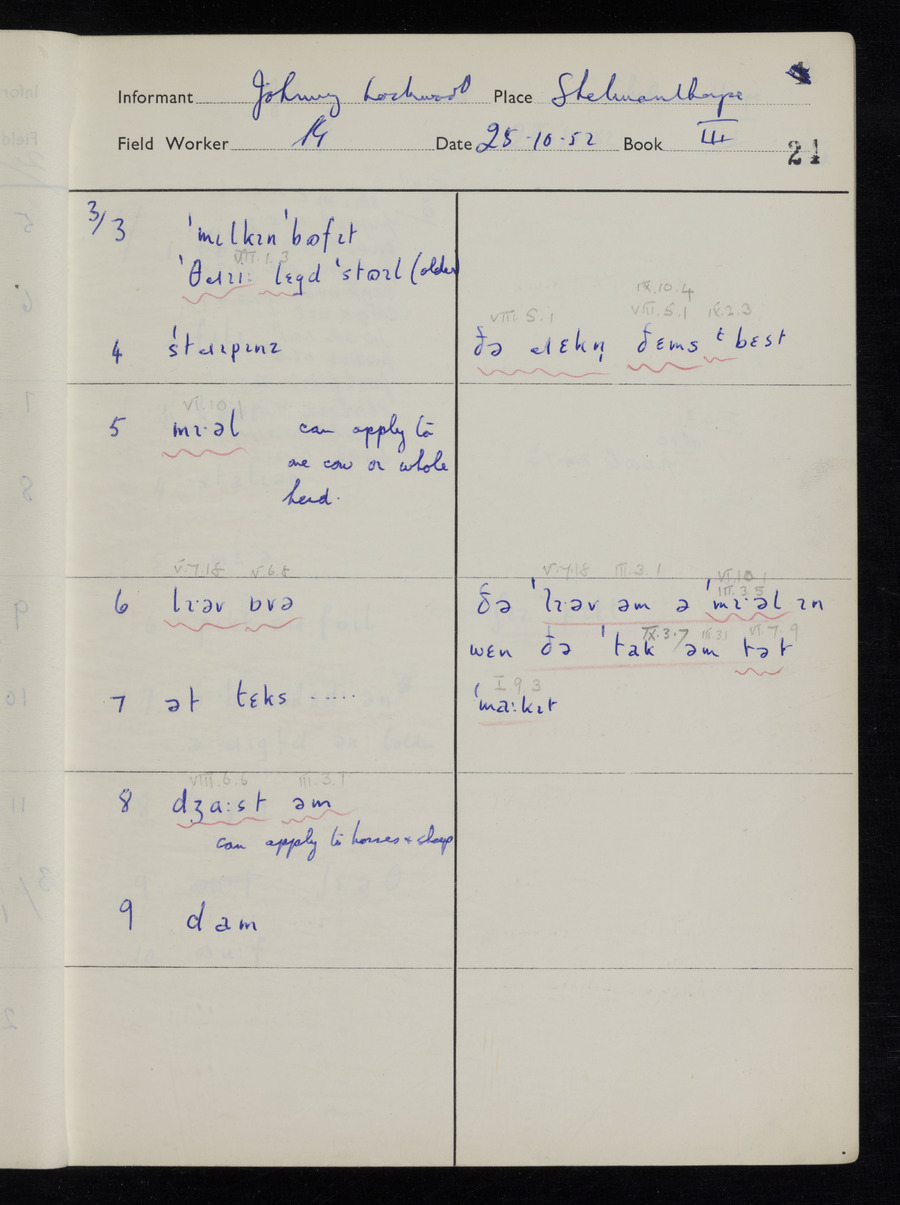 Informant Johnny Lockwood Place Skelmanthorpe
Field Worker Date 25-10-52 Book III
21
3/3 ˈmɪlkɪn ˈbɒfɪt
VII.1.3
lɛgd ˈstɒɪl (older)
IX.10.4
VIII.5.1 VIII.5.1 IX.2.3
4 ðə ðɛms t bɛst
VI.10.1
5 mɪ·əl can apply to
one cow or whole
herd.
V.7.18 V.6.8 V.7.18 III.3.1 VI.10.1
III.3.5
6 lɪəv ɒvə ðə ˈlɪəv əm ə ˈmɪ·əl ɪn
IX.3.7 III.3.1 VI.7.9
wɛn ðə ˈtak əm tət
I.9.3
7 ət tɛks ..... ˈma:kɪt
VIII.6.6 III.3.7
8 dʒa:st əm
can apply to horses & sheep
9 dam